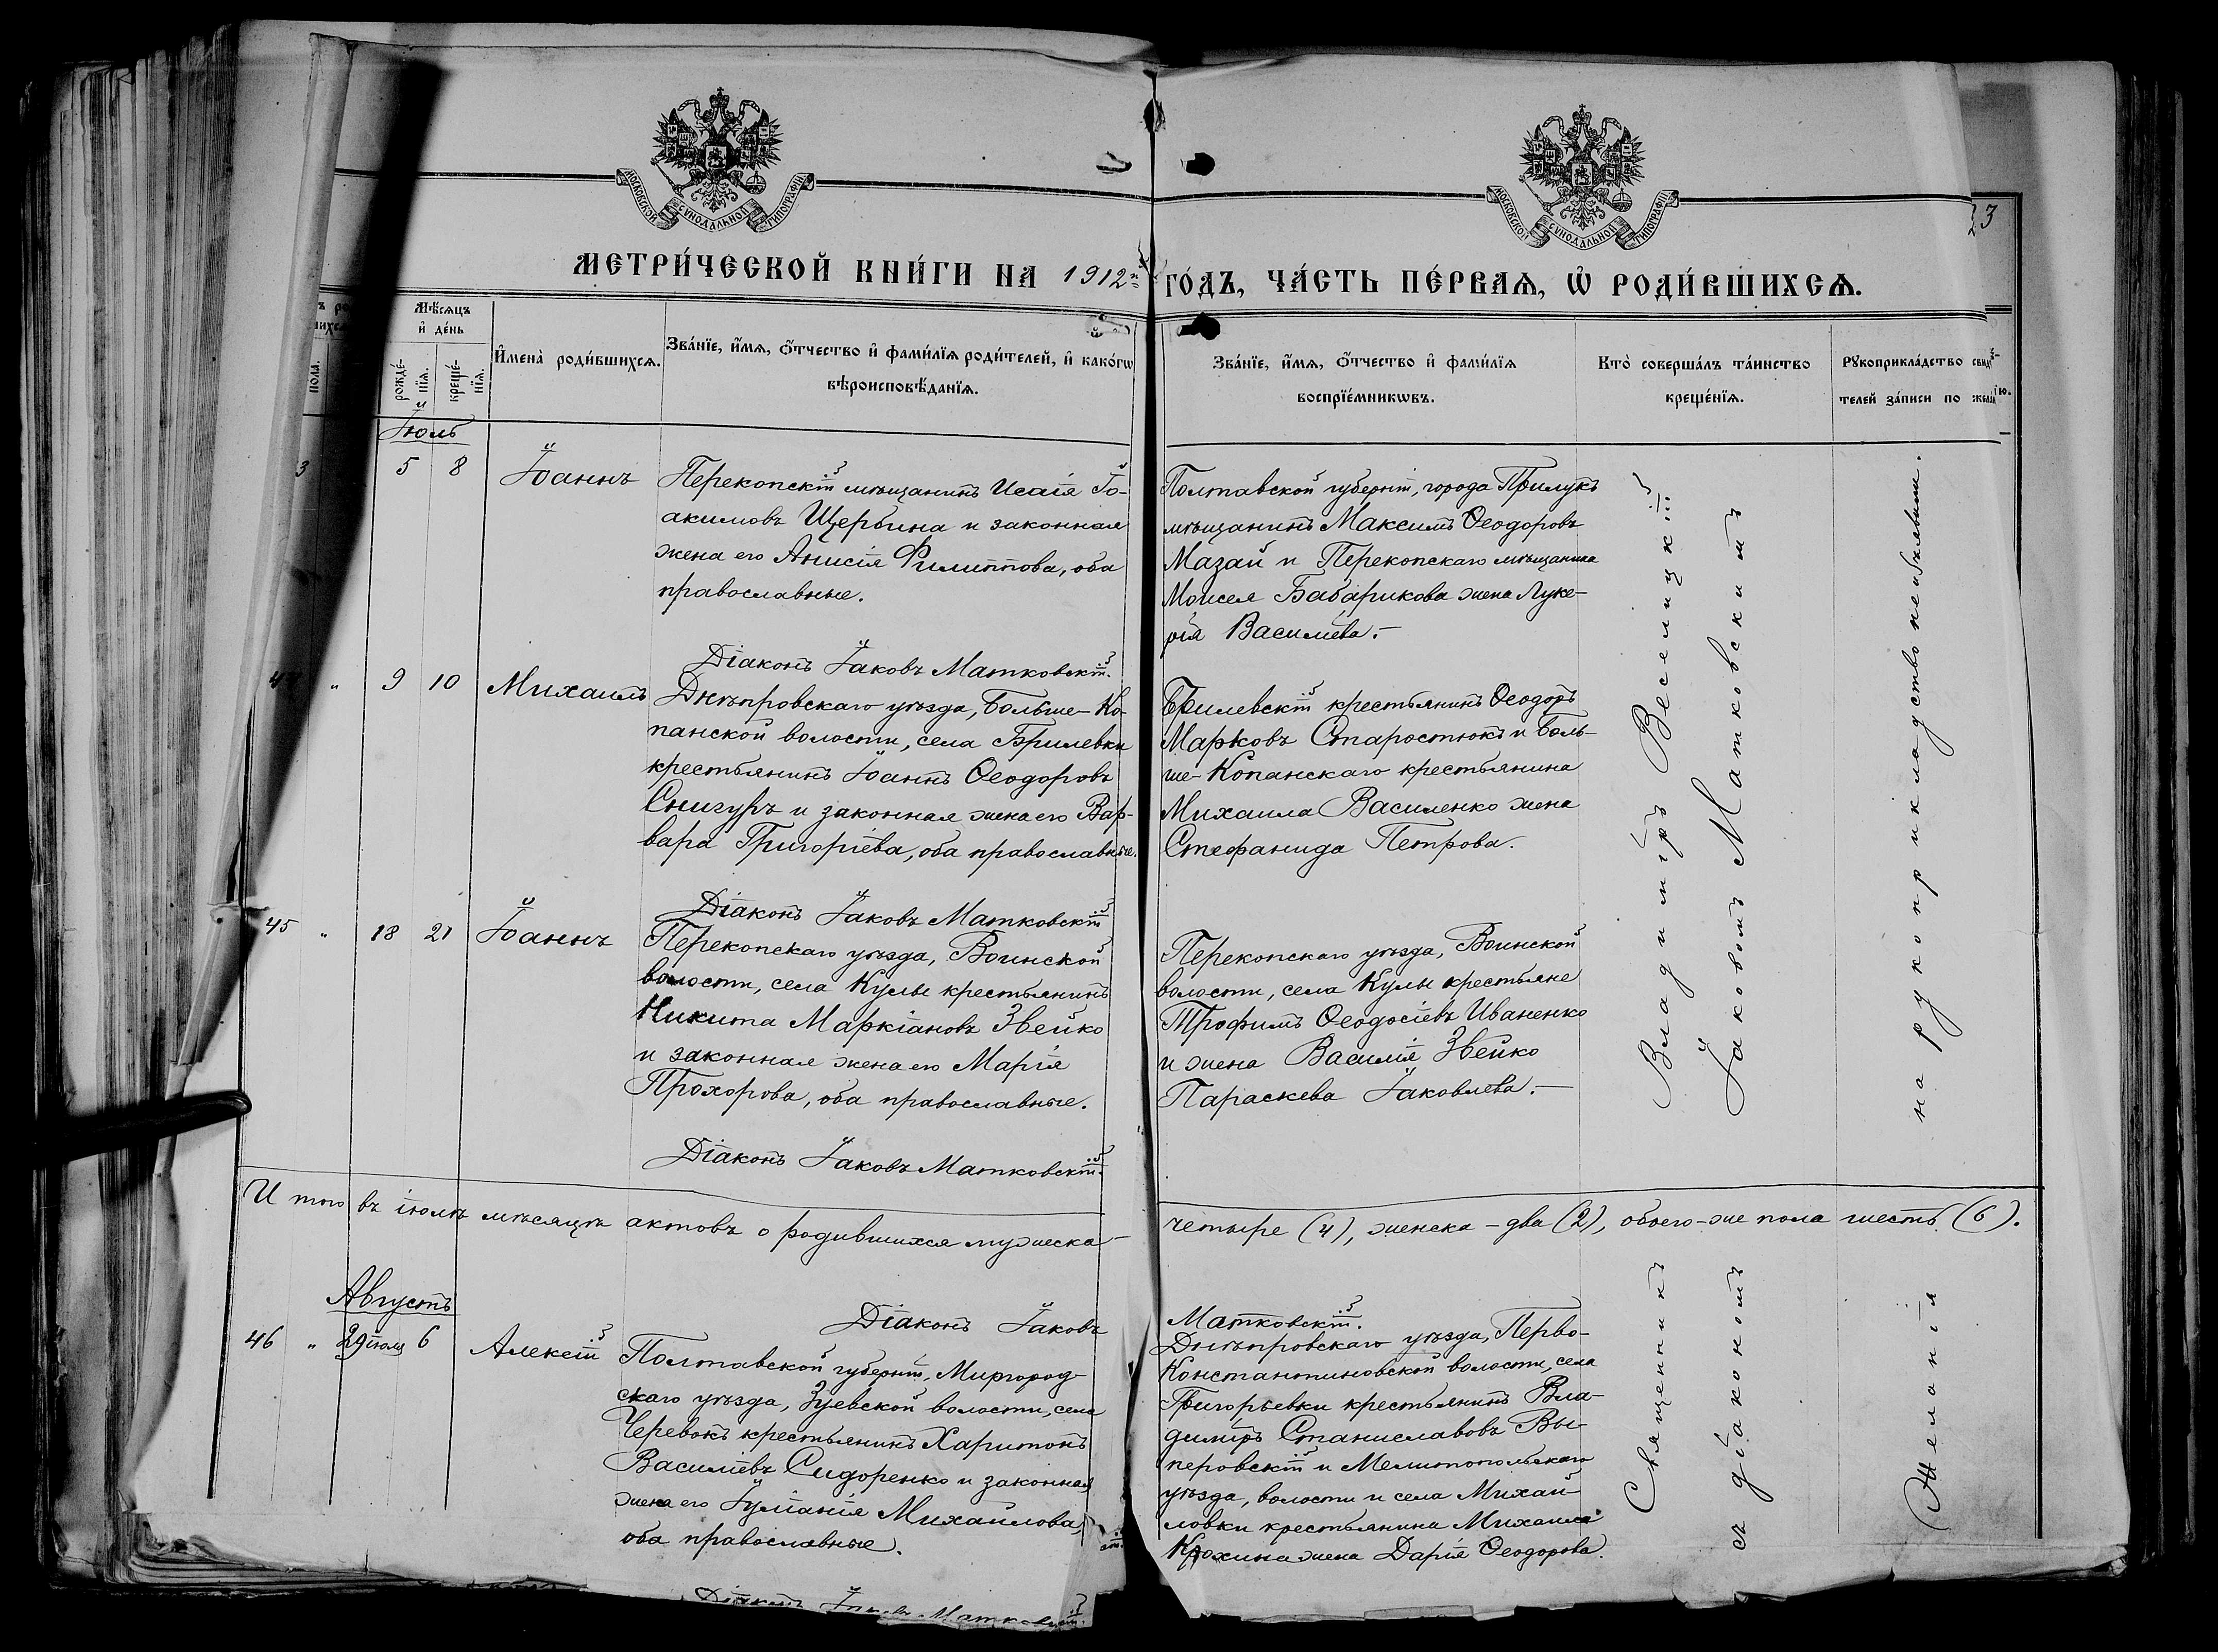 МОСКОВСКОЙ СУНОДАЛЬНОЙ ТИПОГРАФІИ
МОСКОВСКОЙ СУНОДАЛЬНОЙ ТИПОГРАФІИ
23
МЕТРИ́ЧЕСКОЙ КНИ́ГИ НА 1912й ГО́ДЪ, ЧА́СТЬ ПЕ́РВАѦ, Ѡ҆ РОДИ́ВШИХСѦ.
Мѣ́сѧцъ
и҆ де́нь
пола.
рожде́нїѧ.
креще́нїѧ.
И҆мена̀ роди́вшихсѧ.
Зва́нїе, и҆́мѧ, ѻ҆́тчество и҆ фами́лїѧ роди́телей, и҆ како́гѡ
вѣроисповѣ́данїѧ.
Зва́нїе, и҆́мѧ, ѻ҆́тчество и҆ фами́лїѧ
воспрїе́мникѡвъ.
Кто̀ соверша́лъ та́инство
креще́нїѧ.
Рꙋкоприкла́дство свидѣ́-
телей за́писи по жела́нїю.
Іюль
3 5 8 Іоаннъ
Перекопскій мѣщанинъ Исаія Іо-
акимовъ Щербина и законная
жена его Анисія Филиппова, оба
православные.
Діаконъ Іаковъ Матковскій.
Полтавской губерніи, города Прилукъ
мѣщанинъ Максимъ Ѳеодоровъ
Мазай и Перекопскаго мѣщанина
Моисея Бабарикова жена Луке-
рія Васильева.—
" 9 10 Михаилъ
Днѣпровскаго уѣзда, Больше-Ко-
панской волости, села Брилевки
крестьянинъ Іоаннъ Ѳеодоровъ
Снигуръ и законная жена его Вар-
вара Григоріева, оба православные.
Діаконъ Іаковъ Матковскій
Брилевскій крестьянинъ Ѳеодоръ
Марковъ Старостюкъ и Боль-
ше-Копанскаго крестьянина
Михаила Василенко жена
Стефанида Петрова.
45 " 18 21 Іоаннъ
Перекопскаго уѣзда, Воинской
волости, села Кулы крестьянинъ
Никита Маркіановъ Звейко
и законная жена его Марія
Прохорова, оба православные.
Діаконъ Іаковъ Матковскій.
Перекопскаго уѣзда, Воинской
волости, села Кулы крестьяне
Трофимъ Ѳеодосіевъ Иваненко
и жена Василія Звейко
Параскева Іаковлева.—
Итого въ іюлѣ мѣсяцѣ актовъ о родившихся мужеска — четыре (4), женска – два (2), обоего-же пола шесть (6).
Августъ
46 " 29 іюля 6 Алексій
Діаконъ Іаковъ Матковскій.
Полтавской губерніи, Миргород-
скаго уѣзда, Зуевской волости, села
Черевокъ крестьянинъ Харитонъ
Василіевъ Сидоренко и законная
жена его Іуліанія Михаилова,
оба православные.
Діаконъ Іаковъ Матковскій.
Днѣпровскаго уѣзда, Перво-
Константиновской волости, села
Григорьевки крестьянинъ Вла-
диміръ Станиславовъ Вы-
перовскій и Мелитопольскаго
уѣзда, волости и села Михай-
ловки крестьянина Михаила
Крохина жена Дарія Ѳеодорова.
Священникъ Владиміръ Веселицкій
съ діакономъ Іаковомъ Матковскимъ
Желанія на рукоприкладство не изъявили.